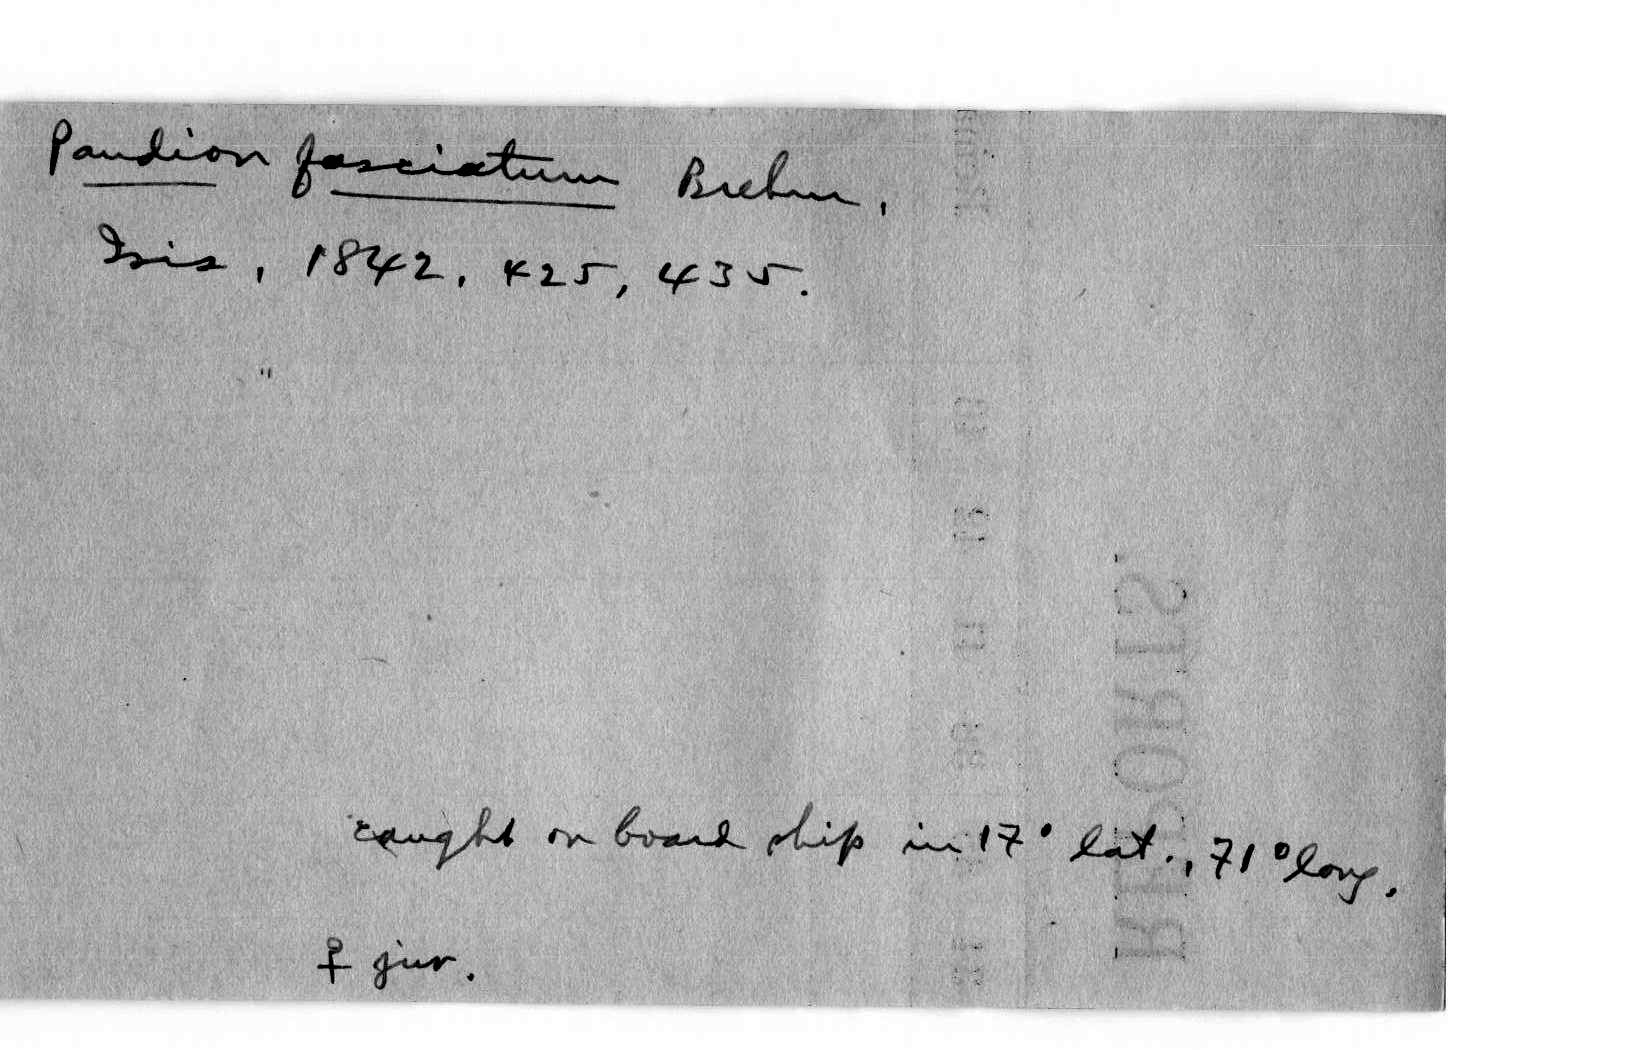 Pandion fasciatum Brehm,
Isis, 1842, 425, 435.
"
caught on board ship in 17° lat., 71° long.
♀ juv.
REPORTS.